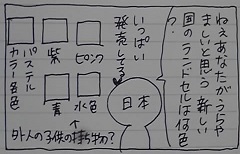 ねえあなたがうらや
ましいと思う新しい
国のランドセルは何色
?
いっぱい
発売してる
日本
ピンク
紫
パステル
カラー各色
水色
青
外人の子供の持ち物?